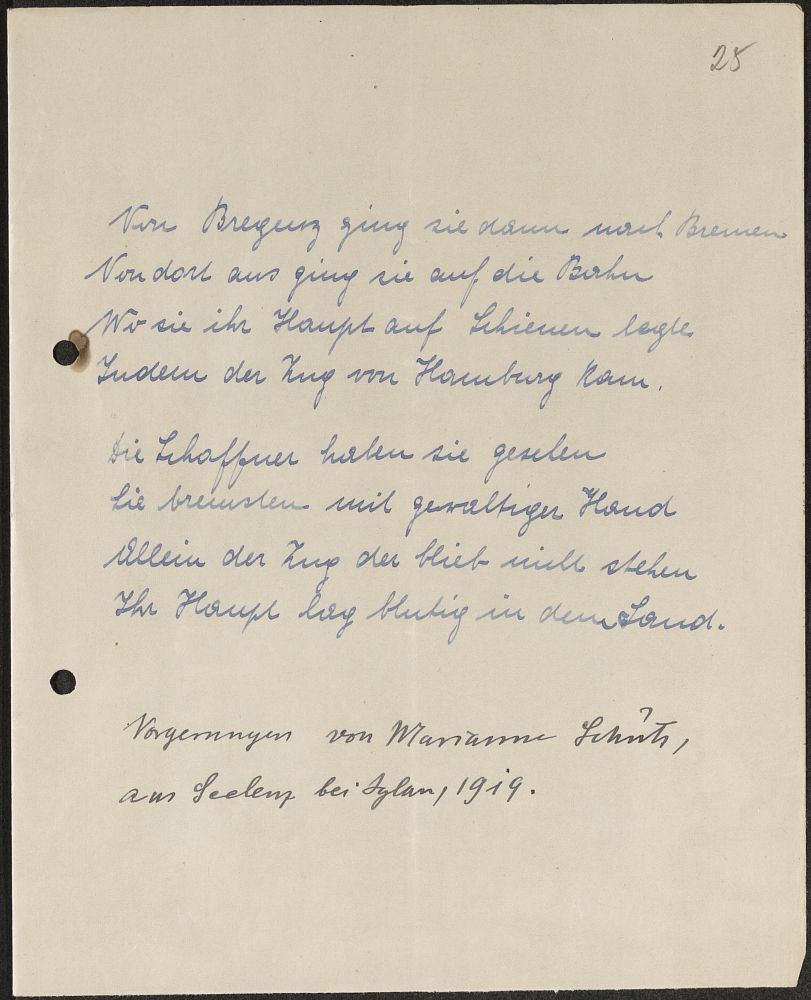 25
Von Bregenz ging sie dann nach Bremen
Von dort aus ging sie auf die Bahn
Wo sie ihr Haupt auf Schienen legte
Indem der Zug von Hamburg kam.
Die Schaffner haben sie gesehen
Sie bremsten mit gewaltiger Hand
Allein der Zug der blieb nicht stehen
Ihr Haupt lag blutig in dem Sand.
Vorgesungen von Marianne Schütz,
aus bei Iglau, 1919.